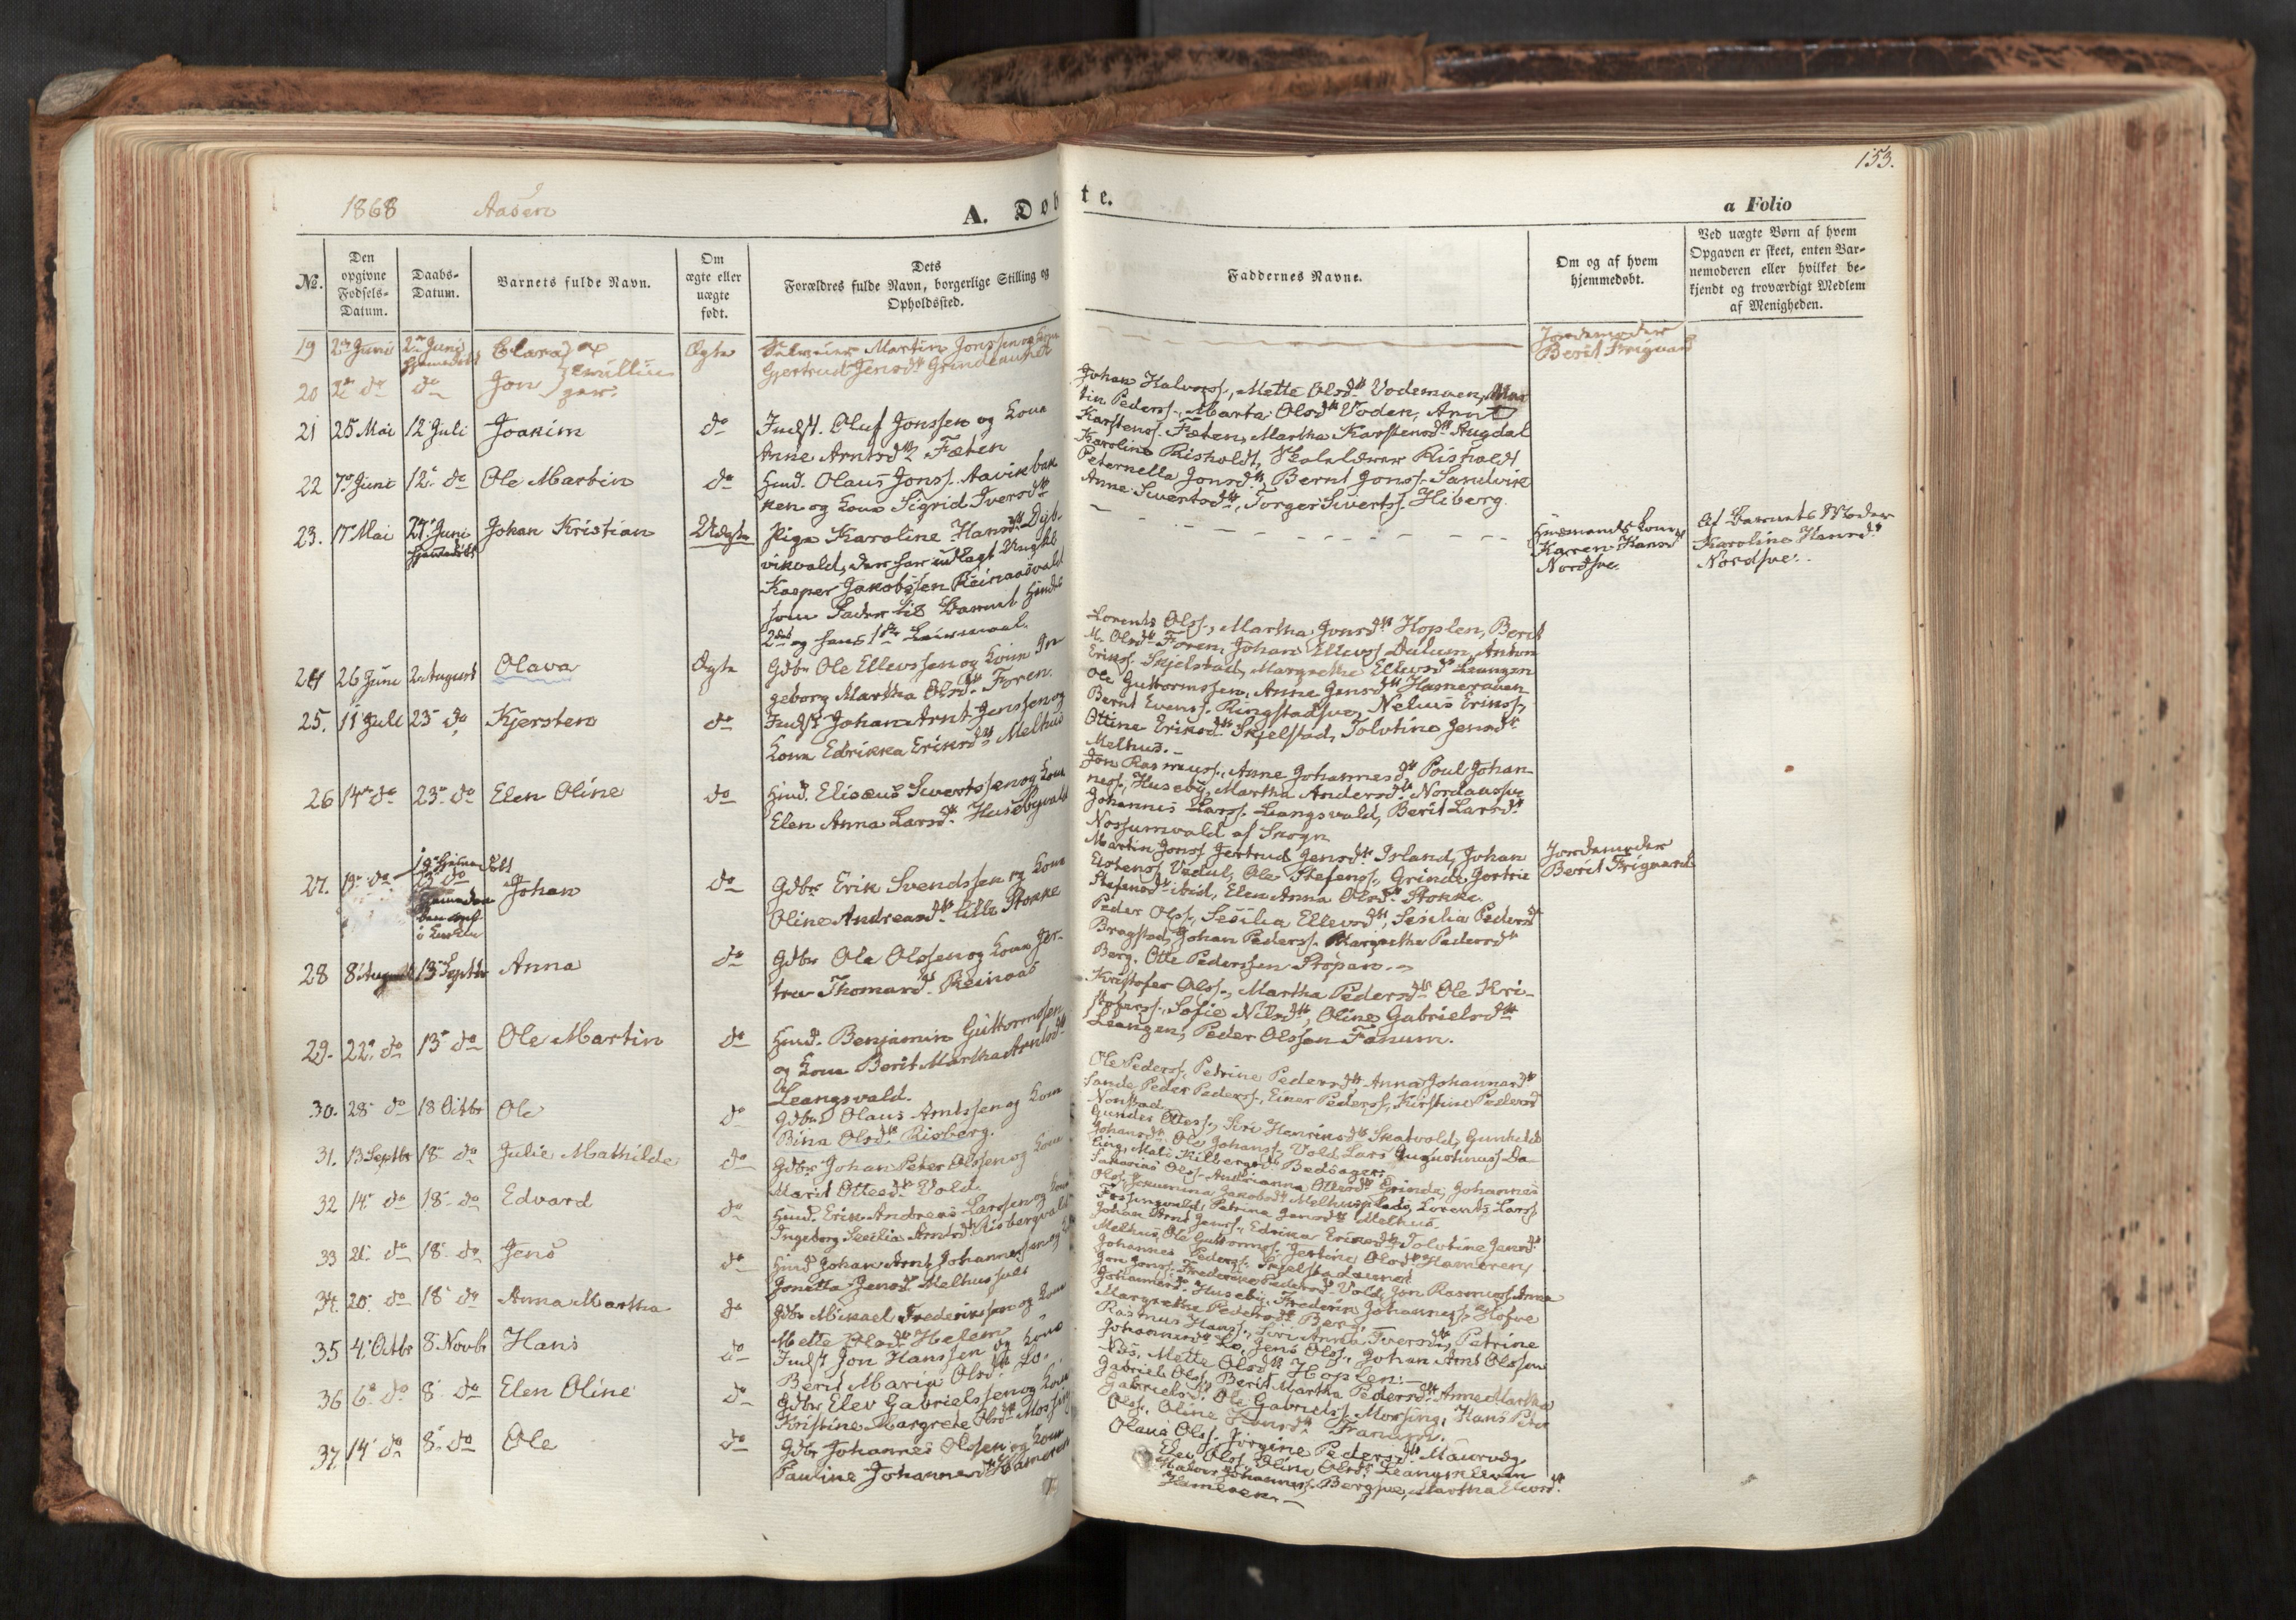 153.
1868 Aasen
A. Døbte.
a Folio
№.
Den opgivne Fødsels-Datum.
Daabs-Datum.
Barnets fulde Navn.
Om ægte eller uægte født.
Dets Forældres fulde Navn, borgerlige Stilling og Opholdssted.
Faddernes Navne.
Om og af hvem hjemmedøbt.
Ved uægte Børn af hvem Opgaven er skeet, enten Barnemoderen eller hvilket bekjendt og troværdigt Medlem af Menigheden.
19 2den Juni 2den Juni hjemmedøbt Clara Ægte Martin Jonssen og Kone
Gjertrud Jensdtr Grindelandet
Jordemoder
Berit Krigvard
20 2den do do Jon
21 25 Mai 12 Juli Joakim do Indst. Oluf Jonssen og Kone
Anne Arntsdtr Fæten
Johan Halvorss., Mette Olsdtr Vodemoen, Mar
tin Pederss., Marta Olsdtr Voden, Arnt
Karstenss. Fæten, Martha Karstensdtr Augdal
22 7de Juni 12te do Ole Martin do Husd. Olaus Jonss. Aavikbak
ken og Kone Sigrid Iversdtr
Karoline Risholdt, Skolelærer Risholdt
Peternella Jonsdtr, Bernt Jonss. Sandvik
Anne Sivertsdtr, Torger Siverts. Hiberg.
23. 17 Mai 24 Juni hjemmedøbt Johan Kristian Uægte Pige Karoline Hansdtr Dyb-
vikvald, der har udlagt Ungkl
Kasper Jakobssen Reinaasvald
som Fader til Barnet hendes
2det og hans 1ste Leiermaal.
Husmands Kone
Karen Hansd
Nordsve.
Af Barnets Moder
Karoline Hansdtr
Nordsve.
24 26 Juni 2 August Olava Ægte Gdbr Ole Ellevssen og Kone In
geborg Martha Olsdtr Foren.
Lorents Olss., Martha Jonsdtr Hoplen, Berit
M. Olsdtr Foren, Johan Ellevss Dalum, Anton
Erikss. Skjelstad, Margrethe Ellevsdtr Leangen
25. 11 Juli 23 do Kjersten do Indst Johan Arnt Jenssen og
Kone Edrikka Eriksdtr Melhus
Ole Guttormssen, Anne Jensdtr Hammeraaen
Bernt Evenss. Ringstadsve, Nelius Erikss,
Ottine Eriksdtr Skjelstad, Tolvtine Jensdtr
Melhus.
26 14de do 23de do Elen Oline do Husd. Elisæus Sivertssen og Kone
Elen Anna Larsdtr Husebyvald
Jon Rasmuss., Anne Johannesdtr, Poul Johan-
ness, Huseby, Martha Andersdtr Nordaassve
Johannes Larss. Leangsvald, Berit Larsdtr
Nossumvald af Skogn
27. do Johan do Gdbr Erik Svendssen og Kone
Oline Andreasdtr lille Stokke
Martin Jonss Gjertrud Jensdtr Island, Johan
Elstenss, Vadul, Ole Stefenss, Grinde, Gortrie
Stefensdtr ibid, Elen Anna Olsdtr Stokke.
Jordemoder
Berit Krigvard
28 8 August 13 Septbr Anna do Gdbr Ole Olssen og Kone Jer-
tru Thomasd. Reinaas
Peder Olss, Sesilia Ellevsdtr, Sesilia Pedersd
Bragstad, Johan Pederss. Margrethe Pedersdtr
Berg. Otte Pederssen Stopan.
29. 22de do 13 do Ole Martin do Husd. Benjamin Guttormssen
og Kone Berit Martha Arntsdtr
Leangsvald.
Kristofer Olss., Martha Pedersdtr Ole Kri-
stoferss., Sofie Nilsdtr, Oline Gabrielsdtr
Leangen, Peder Olssen Fanum.
30. 28 do 18 Octbr Ole do Gdbr Olaus Arntssen og Kone
Bina Olsdtr Risberg.
Ole Pederss, Petrine Pedersdtr Anna Johannesd
Sande Peder Pederss, Einer Pederss, Kirstine Pedersd
31. 13 Septbr 18 do Julie Mathilde do Gdbr Johan Peter Olssen og Kone
Marit Ottesdtr Vold.
Gunder Ottess, Siri Henriksdtr Skatvold, Gunhild
Johansdtr Ole Johanss, Vold, Lars Augustinuss Da-
32 14 do 18 do Edvard do Husd. Erik Andreas Larssen og Kone
Ingeborg Secilia Arntsd. Risbergvald
Sakarias Olss Andrianna Ottesdtr Grinde, Johannes
Olss, Jokumina Jakobsdtr Melhusplads, Lorents Larss
Fossingvald, Petrina Jensdtr Melhus.
33 21 do 18 do Jens do Husd Johan Arnt Johannessen og
Jonetta Jensd. Melhussve
Johan Arnt Jenss, Edrika Eriksdtr Tolvtine Jensd
Melhus, Ole Guttormss. Jertine Olsdtr Hameren,
Johannes Pederss. Skjelstad
34 20 do 18 do Anna Martha do Gdbr Mikael Frederikssen og Kone
Mette Olsdtr Helem
Jon Jonss, Frederike Pedersd. Vold, Jon Rasmuss Anna
Johannesd. Huseby, Frederik Johanness. Hofve
Margrethe Pedersdtr Berg.
35 4 Octbr 8 Novbr Hans do Indst Jon Hanssen og Kone
Berit Maria Olsd. Lo.
Rasmus Hanss., Siri Anna Iversdtr, Petrine
Johannesdtr Lo, Jens Olss, Johan Arnt Olssen
Nss, Mette Olsdtr Hoplen.
36 6 do 8 do Elen Oline do Gdbr Elev Gabrielssen og Kone
Kristine Margrete Olsd. Mossing
Gabriel Olss, Berit Martha Pedersdtr Anne Martha
Gabrielsd. Ole Gabrielss Morsing, Hans Peter
Olss, Oline Franum.
37. 14 do 8 do Ole do Gdbr Johannes Olssen og Kone
Pauline Johannesd Hameren
Olaus Olss, Jørgine Pedersd. Maurvdg
Elev Olss Oline Olsdtr Leangkleven
Halvor Johanness. Bergsve, Martha Elevsd.
Hameren.